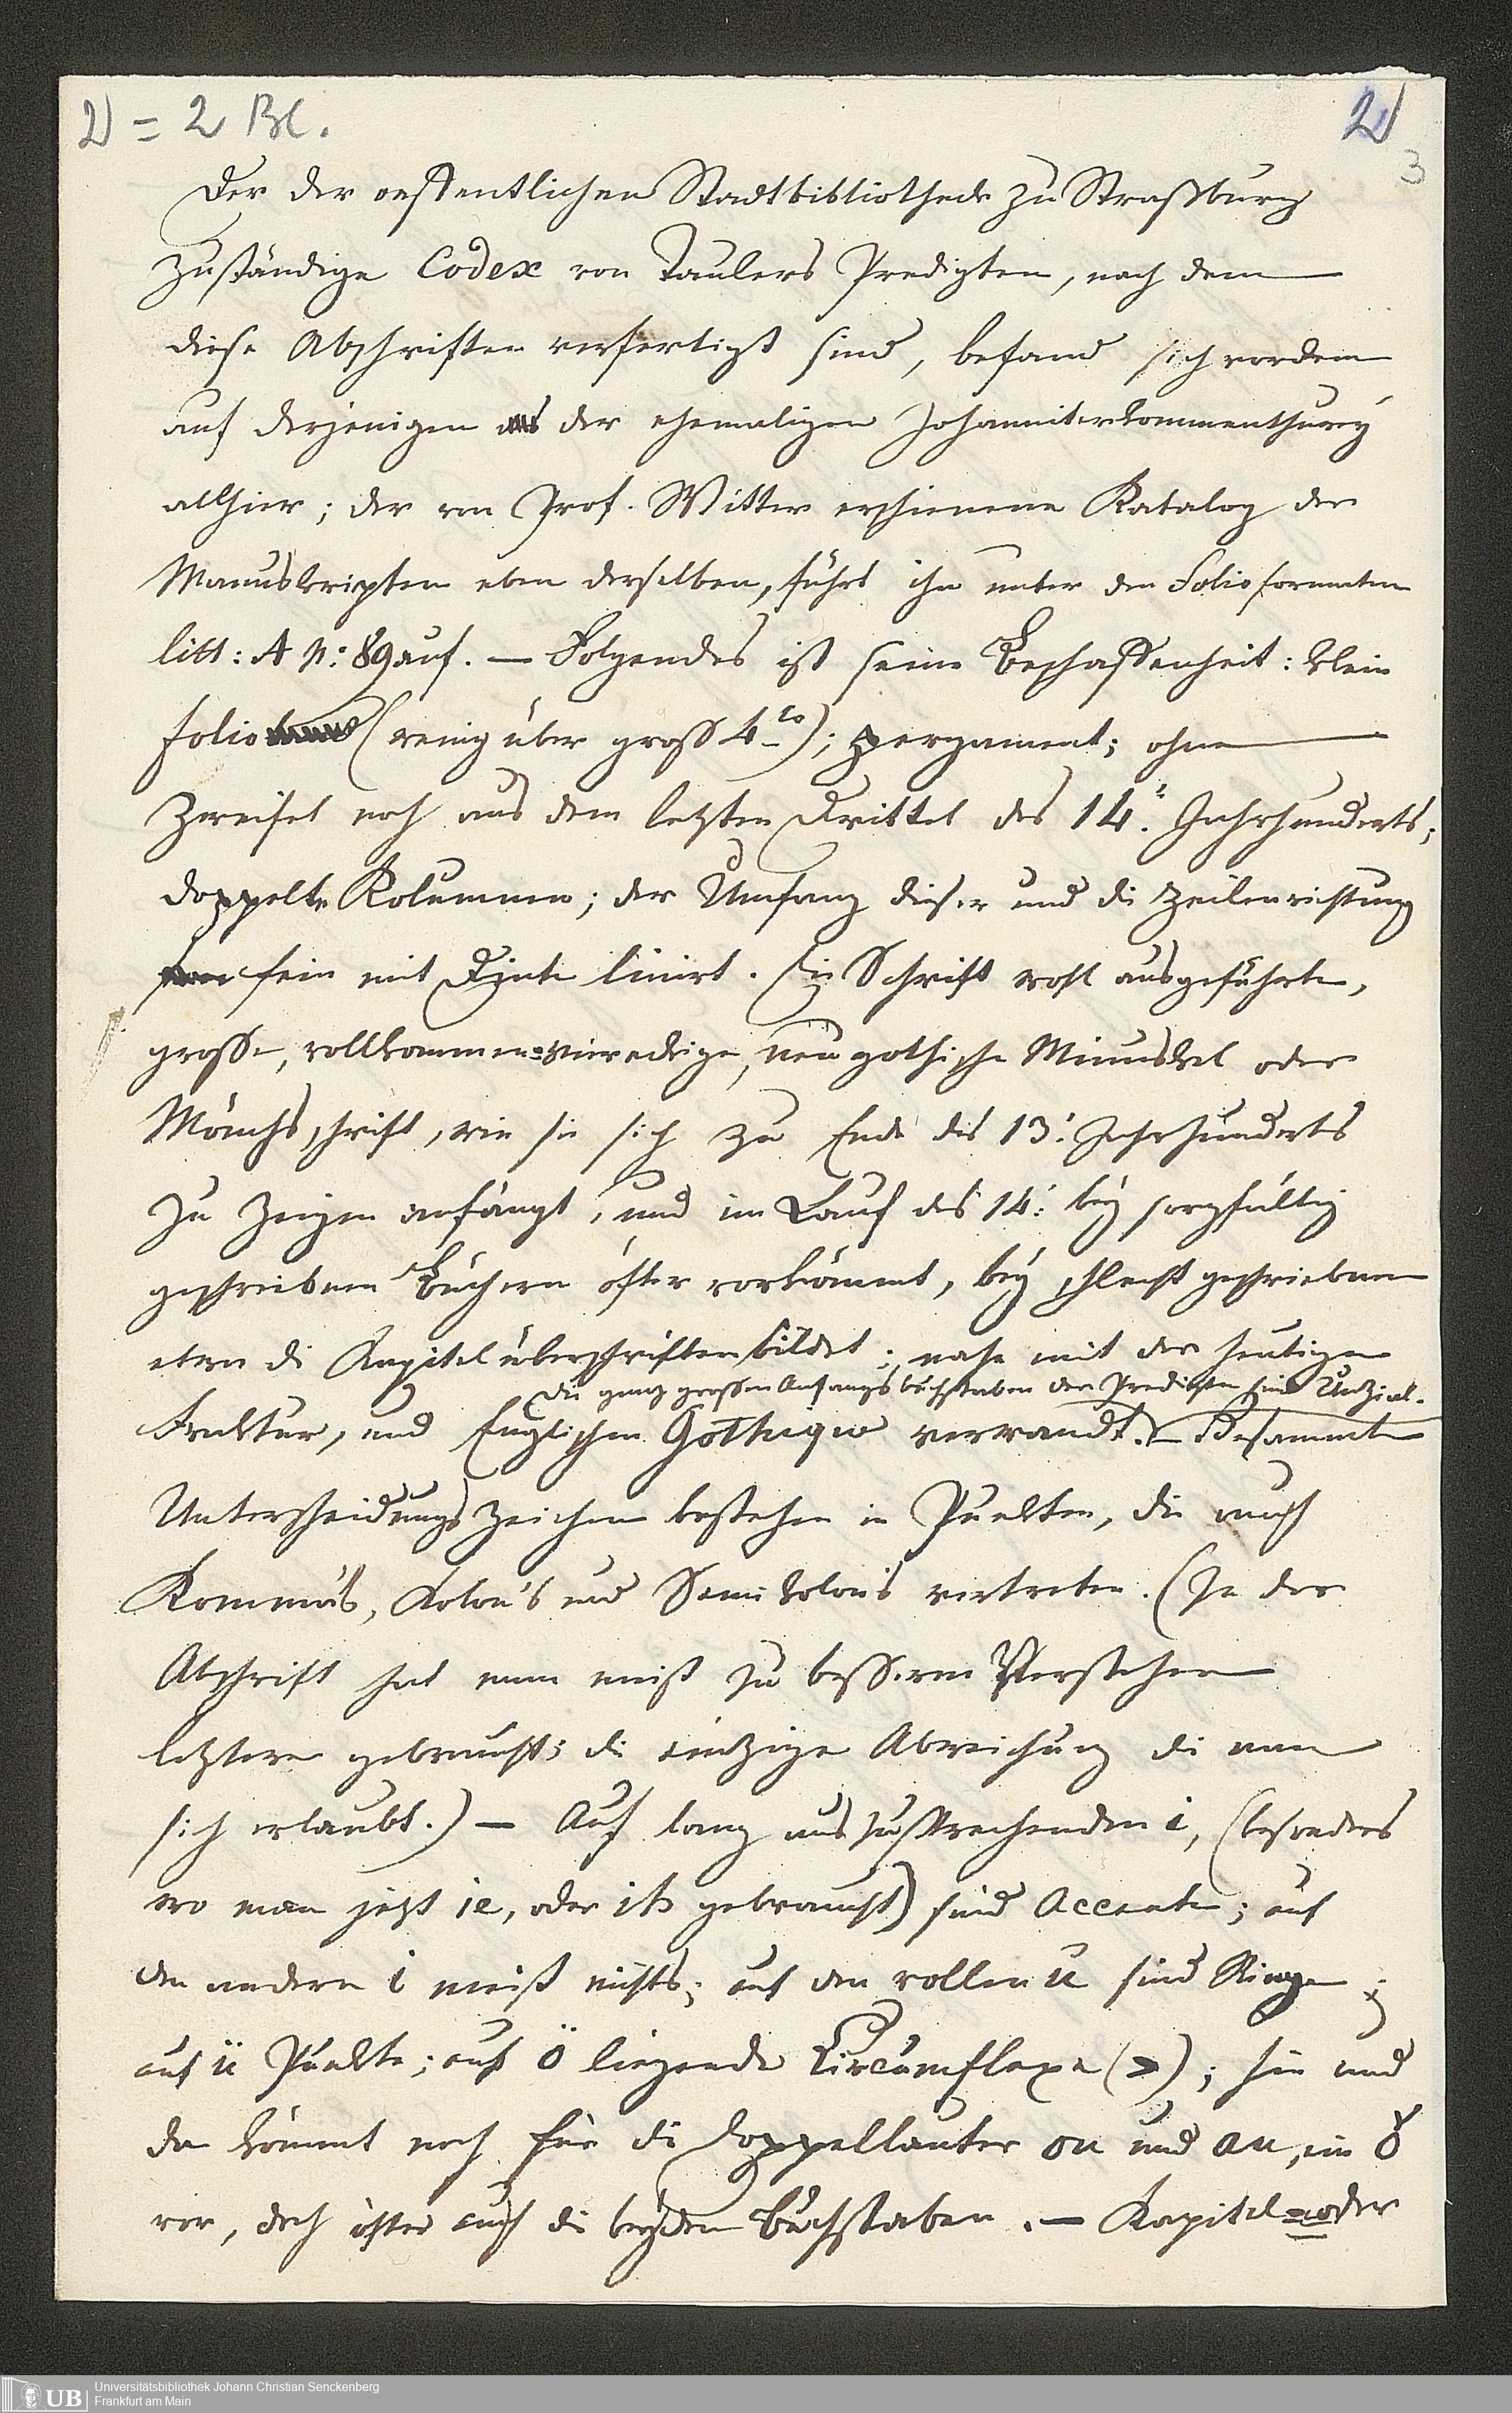 2) = 2 Bl.
2)
3
Der der oeffentlichen Stadtbibliotheck zu Straßburg
zuständige Codex von Taulers Predigten, nach dem
diese Abschriften verfertigt sind, befand sich vordem
auf derjenigen der ehemaligen Johanniterkommenthurey
allhier; der von Prof. Witter erschienene Katalog der
Manuskripten eben derselben, führt ihn unter den Folioformaten
litt: A N: 89 auf. — Folgendes ist seine Beschaffenheit: klein
folio (wenig über gross 4to); pergament; ohne
Zweifel noch aus dem letzten Drittel des 14. Jahrhunderts;
doppelte Kolumnen; der Umfang dieser und die Zeilenrichtung
fein mit Dinte linirt. Die Schrift wohl ausgeführte,
grosse, vollkommen=viereckige, neugothische Minuskel oder
Mönchsschrift, wie sie sich zu Ende des 13. Jahrhunderts
zu zeigen anfängt, und im Lauf des 14. bey sorgfältig
geschriebnen Büchern öfter vorkömmt, bey schlecht geschriebnen
etwa die Kapitelüberschriften bildet; nahe mit der heutigen
die ganz grossen Anfangsbuchstaben der Predigten sind Unzial.
Fraktur, und Englischen Gothique verwandt. — Gesammte
Unterscheidungszeichen bestehen in Punkten, die auch
Komma's, Kolon's und Semikolon's vertreten. (In der
Abschrift hat man meist zu besserem Verstehen
letztere gebraucht; die einzige Abweichung die man
sich erlaubt.) — Auf lang auszusprechenden i, (besonders
wo man jetzt ie, oder ih gebraucht) sind Accente; auf
den andern i meist nichts; auf den vollen u sind Ringe;
auf ü Punkte; auf ö liegende Circumflexe (>); hie und
da kömmt noch für die Doppellauter ou und au, ein ǒ
vor, doch öfter auch die beyden Buchstaben. — Kapitel=oder
Universitätsbibliothek Johann Christian Senckenberg
Frankfurt am Main
UB